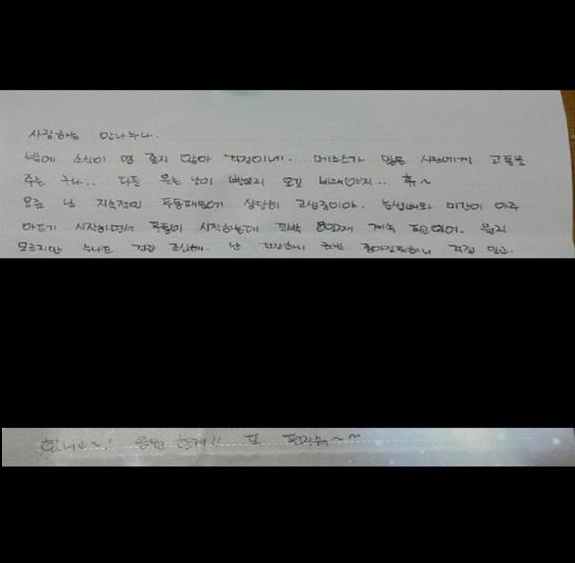 사랑하는 안나누나.
밖에 소식이 영 좋지 않아 걱정이네. 메르스가 많은 사람에게 고통을
주는구나.. 다들 웃는 날이 빨리 오길 바래야지.. 휴~
요즘 난 지속적인 두통때문에 상당히 고생중이야. 눈썹뼈와 미간이 아주
아프기 시작하면서 두통이 시작하는데 꼬박 계속 되고있어. 뭔지
모르지만 누나도 건강 조심해. 난 건강하니 금방 좋아질꺼니 걱정 말고.
힘내요~! 응원할게!! 또 편지해~^^